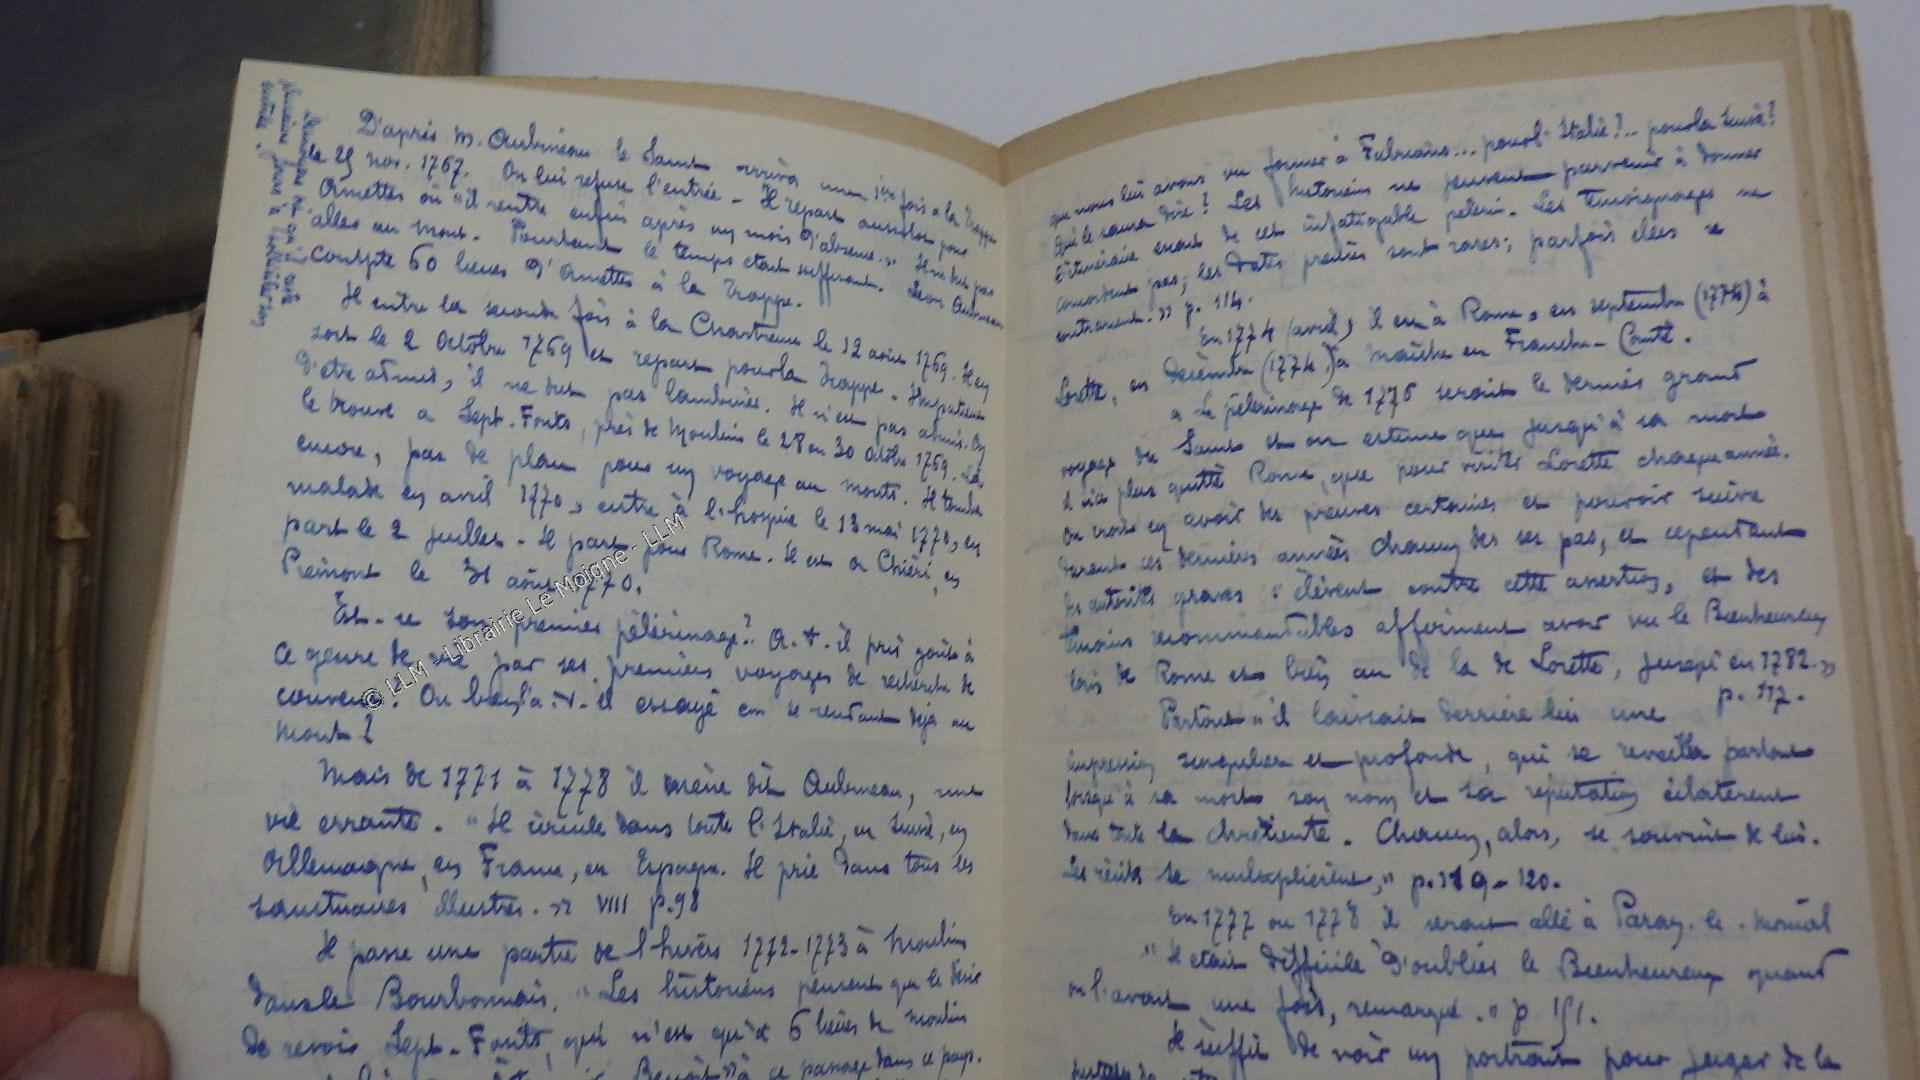 D'après M. Aubineau le Saint arriva une 1ère fois à la Trappe
le 25 nov. 1767. On lui refuse l'entrée - Il repart aussitôt pour
Amettes où "il rentre enfin après un mois d'absence." Il ne dut pas
aller au Mont. Pourtant le temps était suffisant. Léon Aubineau
compte 60 lieues d'Amettes à la Trappe.
Il entre la seconde fois à la Chartreuse le 12 août 1769. Il en
sort le 2 Octobre 1769 et repart pour la Trappe - Impatient
d'être admis, il ne dut pas lambiner. Il n'est pas admis. On
le trouve à Sept-Fonts, près de Moulins le 28 ou 30 octobre 1769. Là
encore, pas de plan pour un voyage au monts. Il tombe
malade en avril 1770, entre à l'hospice le 13 mai 1770, en
part le 2 juillet - Il part pour Rome. Il est à Chiéri, en
Piémont le 31 août 1770.
Est-ce son premier pèlerinage? A-t-il pris goût à
ce genre de vie par ses premiers voyages de recherche de
couvent? Ou bien l'a-t-il essayé en se rendant déjà au
Mont?
Mais de 1771 à 1778 il mène dit Aubineau, une
vie errante. "Il circule dans toute l'Italie, en Suisse, en
Allemagne, en France, en Espagne. Il prie dans tous les
sanctuaires illustres." VIII p.98
Il passe une partie de l'hiver 1772-1773 à Moulins
dans le Bourbonnais. "Les historiens pensent que le désir
de revoir Sept-Fonts, qui n'est qu'à 6 lieues de Moulins
Benoît" à ce passage dans ce pays.
que nous lui avons vu former à Fabriano... pour l'Italie?.. pour la Suisse?
Qui le saura dire? Les historiens ne peuvent parvenir à donner
l'itinéraire exact de cet infatigable pèlerin. Les témoignages ne
concordent pas; les dates précises sont rares; parfois elles se
contrarient." p. 114.
En 1774 (avril), il est à Rome, en septembre (1774) à
Lorette, en décembre (1774) à Maîche en Franche-Comté.
"Le pèlerinage de 1776 serait le dernier grand
voyage du Saint et on estime que jusqu'à sa mort
il n'a plus quitté Rome, que pour visiter Lorette chaque année.
On croit en avoir des preuves certaines et pouvoir suivre
durant ces dernières années chacun des ses pas, et cependant
des autorités graves s'élèvent contre cette assertion, et des
témoins recommandables affirment avoir vu le Bienheureux
loin de Rome et bien au delà de Lorette, jusqu'en 1782."
p. 117.
Partout "il laissait derrière lui une
impression singulière et profonde, qui se réveilla partout
lorsqu'à sa mort son nom et sa réputation éclatèrent
dans toute la chrétienté. Chacun, alors, se souvint de lui.
Les récits se multiplièrent," p. 119-120.
En 1777 ou 1778 il serait allé à Paray-le-Monial
"Il était difficile d'oublier le Bienheureux quand
on l'avait une fois, remarqué." p 151.
Il suffit de voir un portrait pour juger de la
© LLM - Librairie Le Moigne - LLM